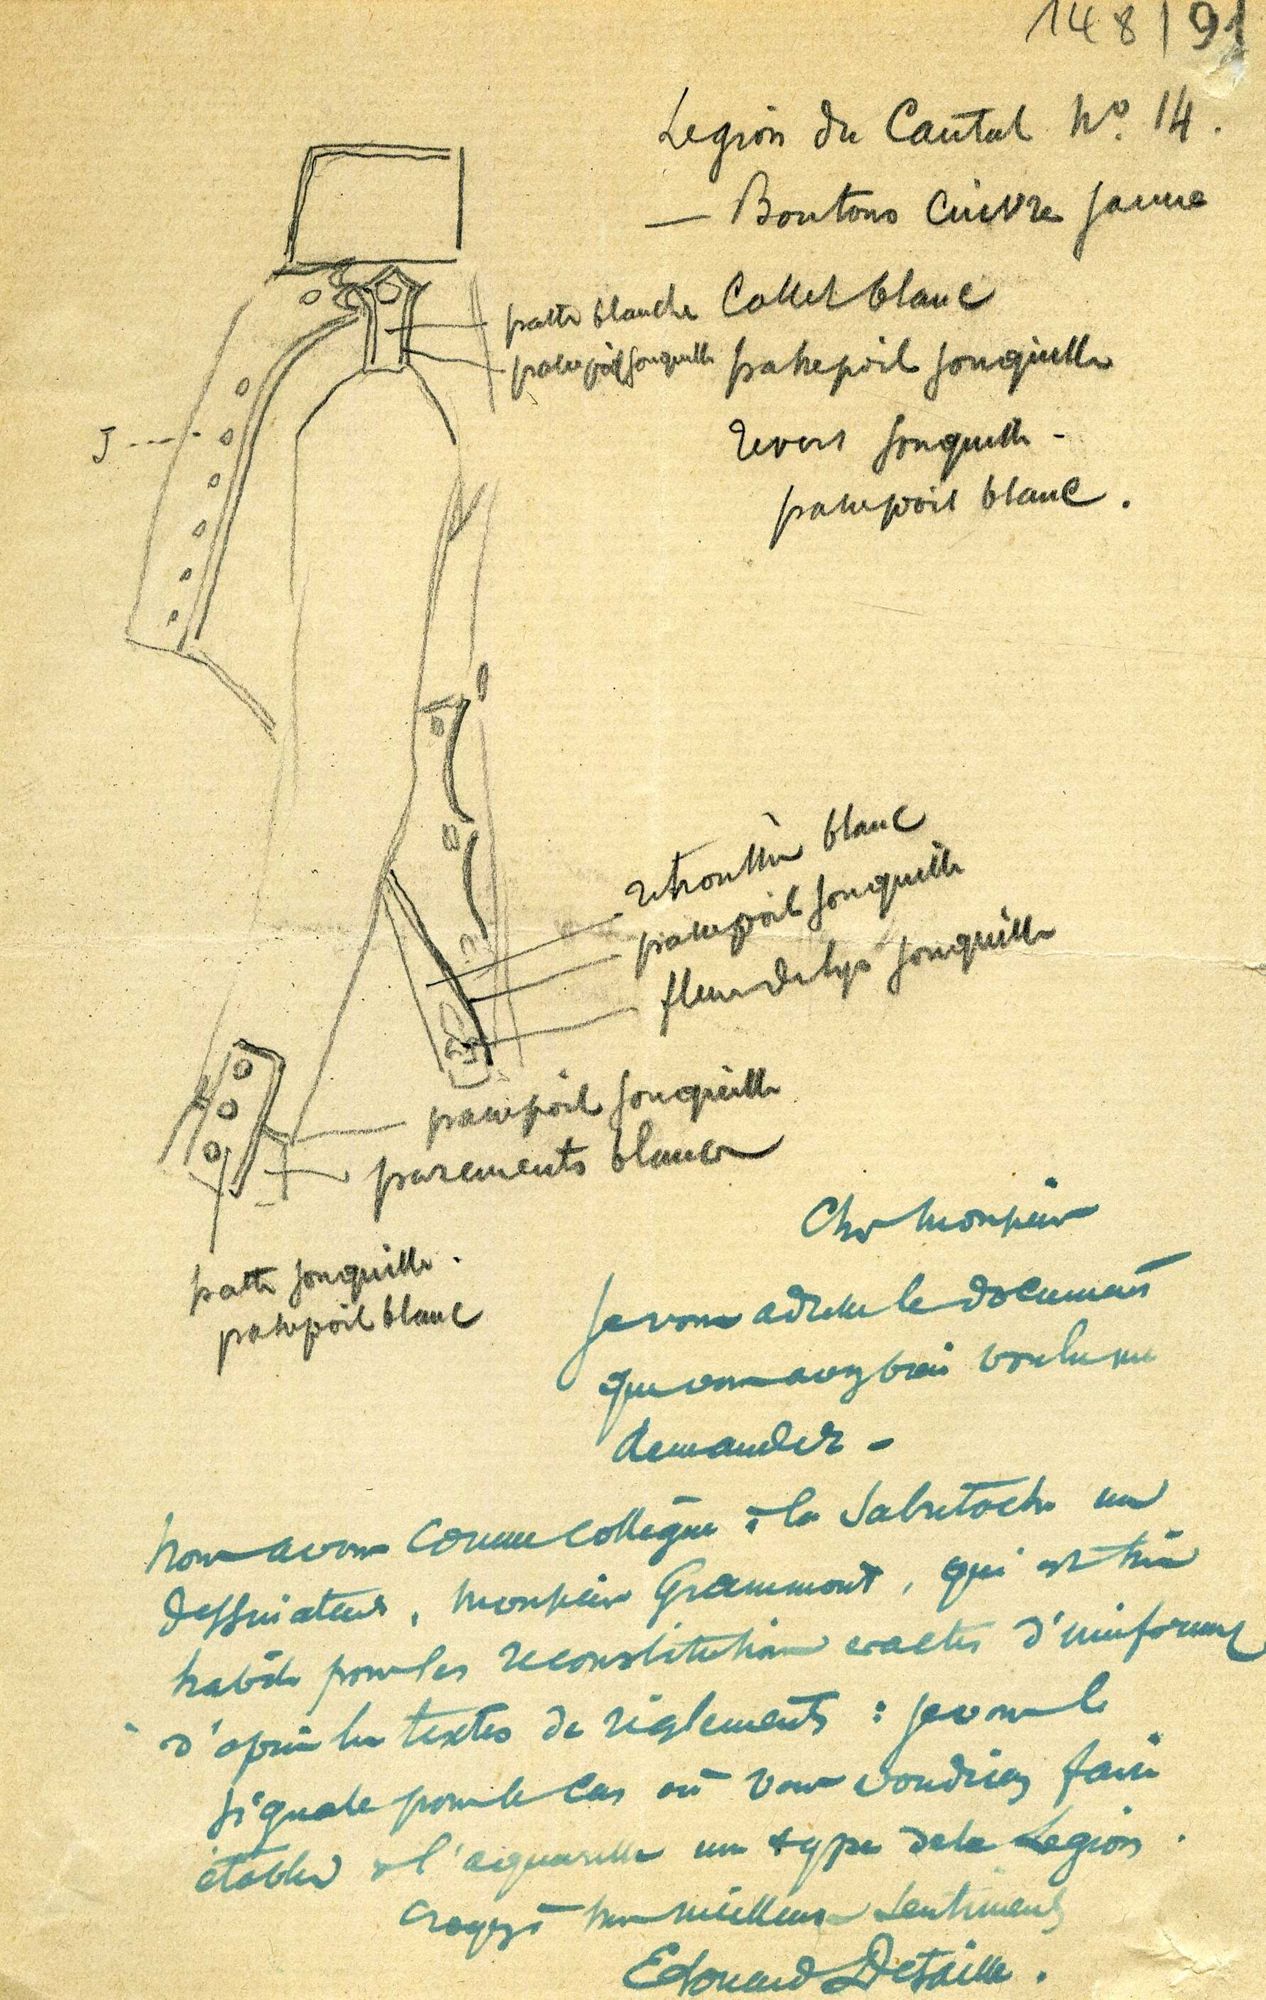 148 | 91
Legion du Cantal No. 14.
— Boutons cuivre jaune
patte blanche
passepoil jonquille
Collet blanc
passepoil jonquille
revers jonquille -
passepoil blanc.
J
retroussis blanc
passepoil jonquille
fleur de lys jonquille
passepoil jonquille
parements blancs
patte jonquille.
passepoil blanc
Cher Monsieur
Je vous adresse le document
que vous avez bien voulu me
demander -
Nous avons comme collègue à la Sabretache un
dessinateur, Monsieur Grammont, qui est très
habile pour les reconstitutions exactes d'uniformes
d'après les textes de règlements : je vous le
signale pour le cas où vous voudriez faire
établir à l'aquarelle un type de la Legion.
Croyez à mes meilleurs sentiments
Edouard Detaille.